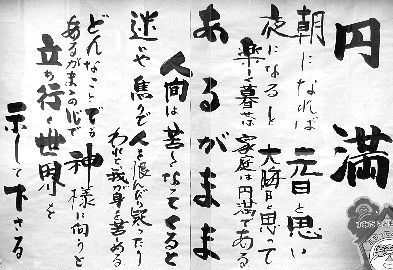 円満
朝になれば
元日と思い
夜になると
大晦日と思って
楽しく暮せば
家庭は円満である
あるがまま
人間は苦しくなってくると
迷いや焦りで人を恨んだり疑ったり
われと我が身を苦める
どんなことでも神様に向うと
あるがままの心で
立ち行く世界を
示して下さる